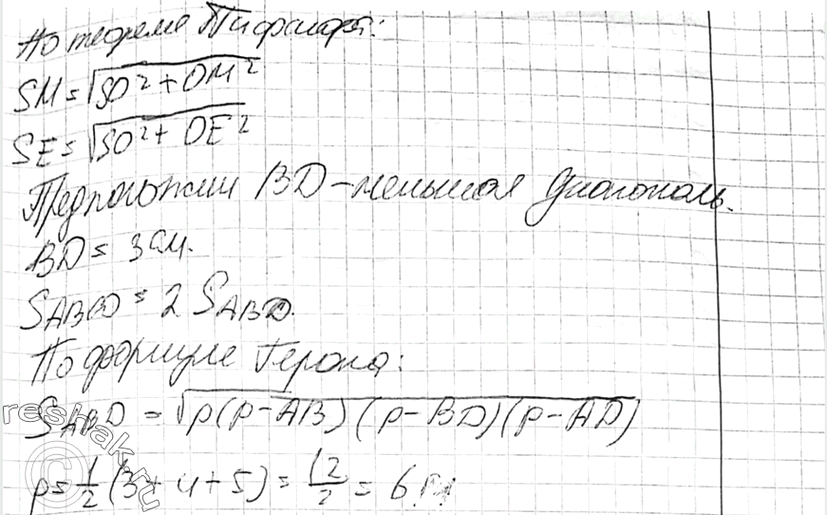 По теореме Пифагора:
SM = √SO² + OM²
SE = √SO² + OE²
Предположим BD – меньшая диагональ.
BD = 3 см.
SABCD = 2 SABD.
По формуле Герона:
SABD = √p(p-AB)(p-BD)(p-AD)
p = 1/2 (3+4+5) = 12/2 = 6 см
reshak.ru